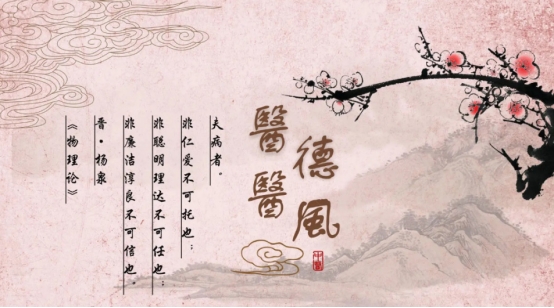 醫德
醫風
中醫
夫病者。
非仁爱不可托也；
非聪明理达不可任也；
非廉洁淳良不可信也。
晋·杨泉
《物理论》